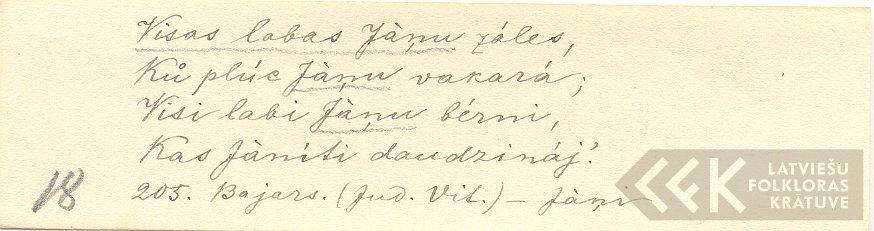 Visas labas Jàņu záles,
Ků plúc Jàņu vakará;
Visi labi Jàņu bérni,
Kas Jàníti daudzináj'.
205. Bajars. (Jud. Vit.) – Jàņi
18
LATVIEŠU
FOLKLORAS
KRĀTUVE